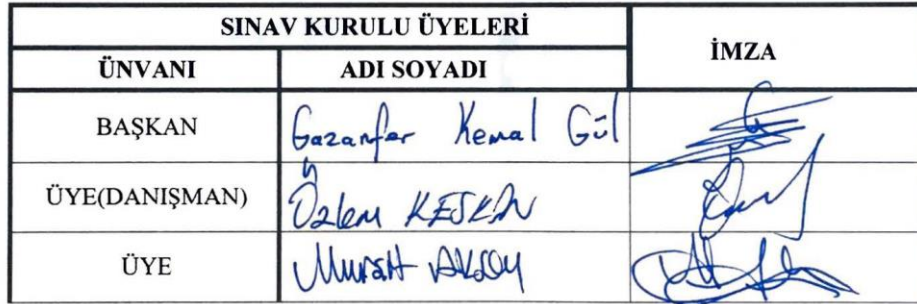 SINAV KURULU ÜYELERİ
İMZA
ÜNVANI ADI SOYADI
BAŞKAN Gazanfer Kemal Gül
ÜYE(DANIŞMAN) Özlem KESKİN
ÜYE Murat AKSOY